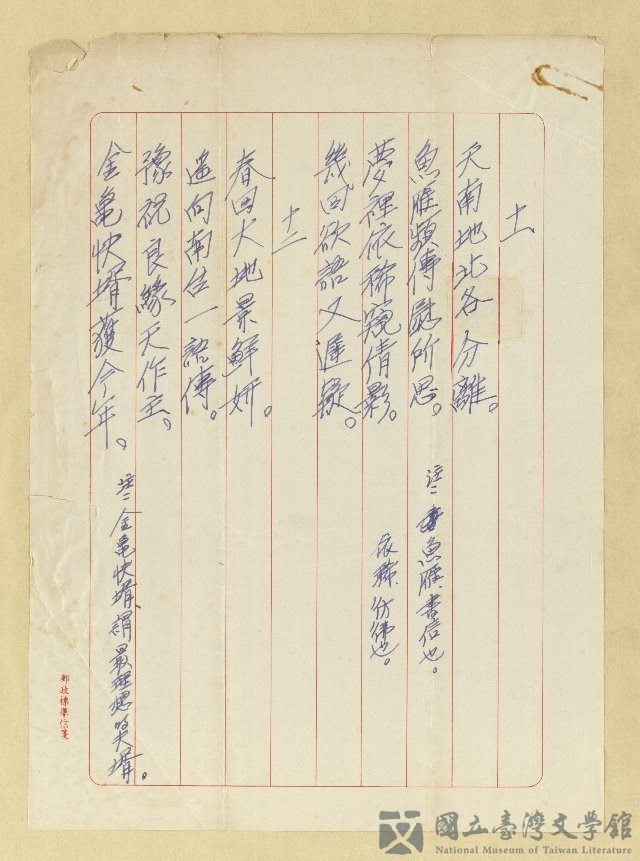 十一
天南地北各分離。
魚雁頻傳慰所思。
夢裡依稀窺倩影。
幾回欲語又遲疑。
註二 魚雁、書信也。
依稀、彷彿也。
十二
春回大地景鮮妍。
遙向南台一語傳。
豫祝良緣天作主。
金龜快壻獲今年。
註二 金龜快壻、謂最理想笑壻。
郵政標準信箋
國立臺灣文學館
National Museum of Taiwan Literature